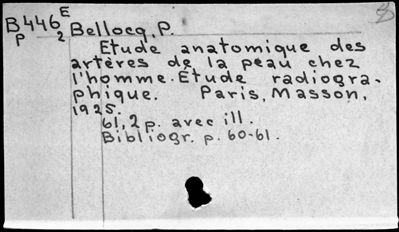 B446E Bellocq, P.
p 2
Etude anatomique des
artères de la peau chez
l'homme. Etude radiogra-
phique. Paris, Masson,
1925.
61, 2 p. avec ill.
Bibliogr. p. 60-61.